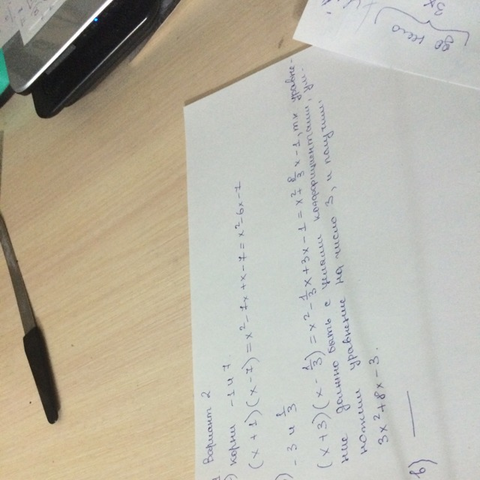 Вариант 2
) корни -1 и 7.
(x + 1)(x - 7) = x² - 7x + x - 7 = x² - 6x - 7
) -3 и 1/3
(x + 3)(x - 1/3) = x² - 1/3 x + 3x - 1 = x² + 8/3 x - 1, тк уравне-
ние должно быть с целыми коэффициентами, ум.
ножим уравнение на число 3, и получим:
3x² + 8x - 3.
в) —
до него
3x